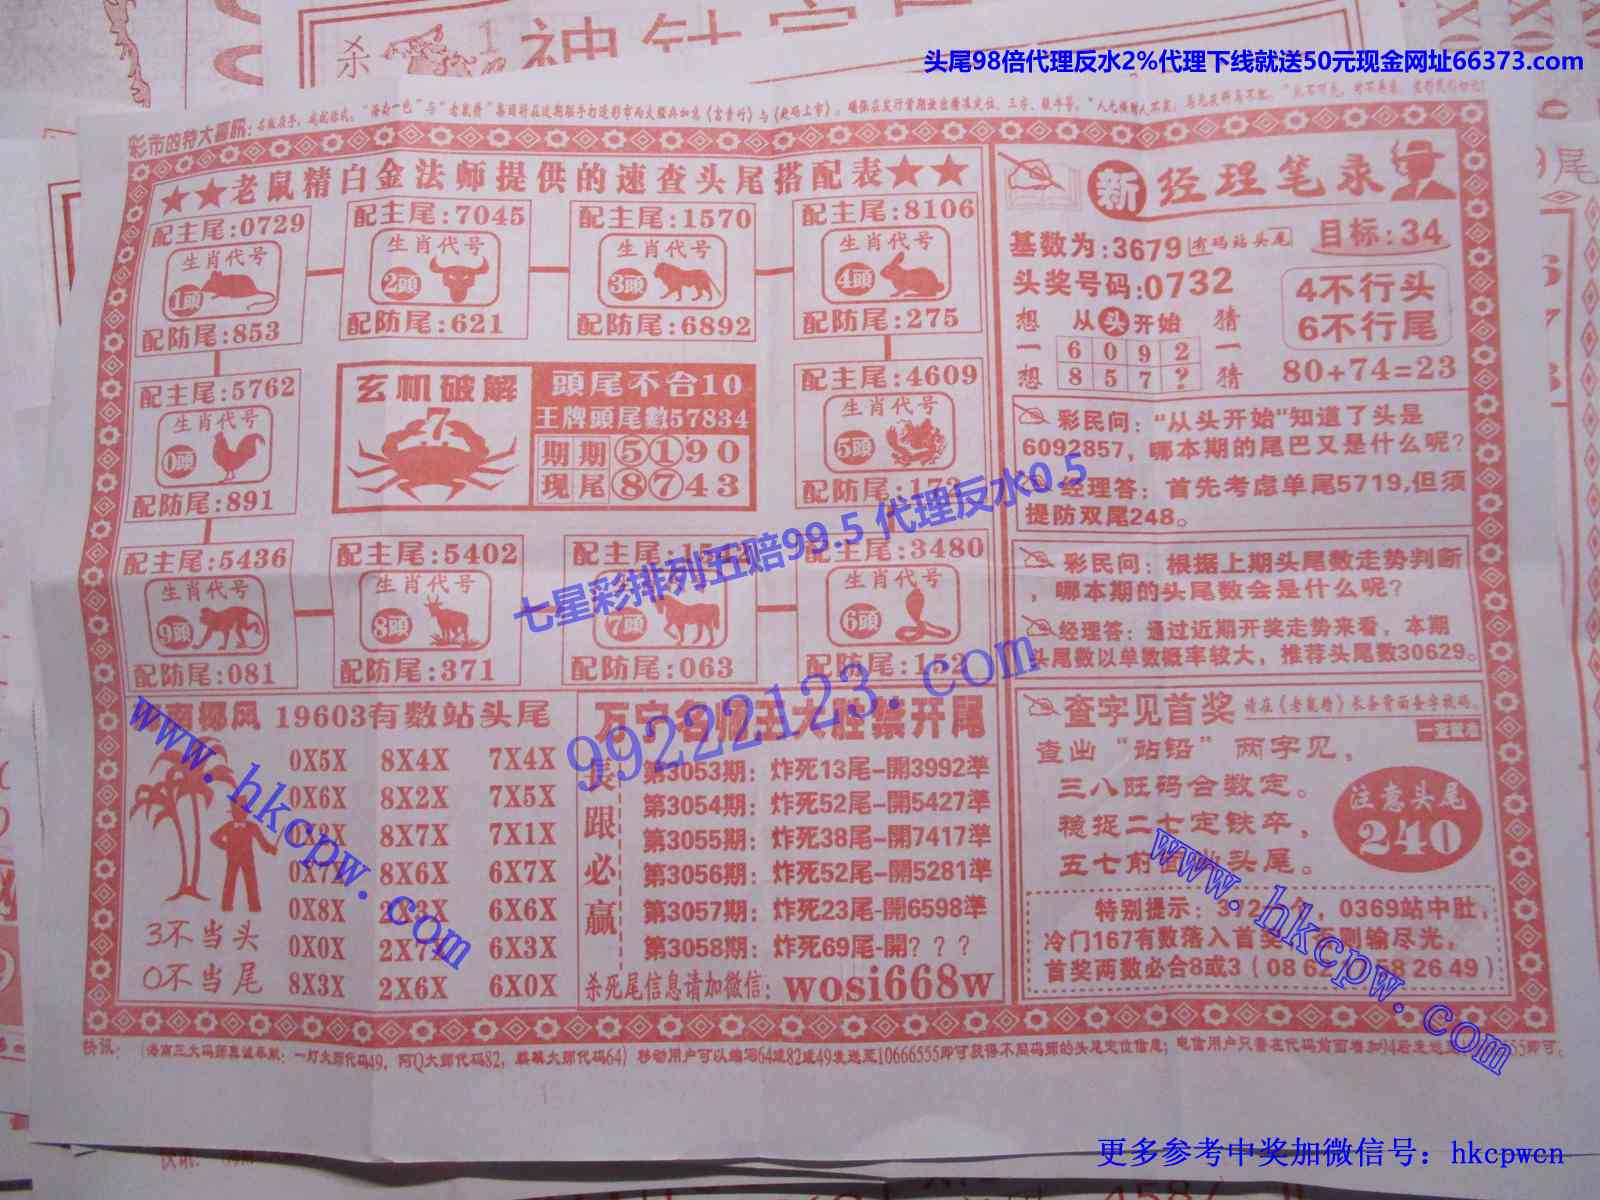 头尾98倍代理反水2%代理下线就送50元现金网址66373.com
杀
彩市的特大喜讯:
★★老鼠精白金法师提供的速查头尾搭配表★★
配主尾:0729
生肖代号
1頭
配防尾:853
配主尾:7045
生肖代号
2頭
配防尾:621
配主尾:1570
生肖代号
3頭
配防尾:6892
配主尾:8106
生肖代号
4頭
配防尾:275
配主尾:5762
生肖代号
0頭
配防尾:891
玄机破解
7
頭尾不合10
王牌頭尾數57834
期期⑤①90
现尾⑧⑦43
配主尾:4609
生肖代号
5頭
配防尾:173
配主尾:5436
生肖代号
9頭
配防尾:081
配主尾:5402
生肖代号
8頭
配防尾:371
配主尾:
7頭
配防尾:063
配主尾:3480
生肖代号
6頭
配防尾:152
七星彩排列五赔99.5 代理反水0.5
99222123.com
椰风 19603有数站头尾
0X5X 8X4X 7X4X
0X6X 8X2X 7X5X
0X2X 8X7X 7X1X
0X7X 8X6X 6X7X
0X8X 2X3X 6X6X
0X0X 2X7X 6X3X
8X3X 2X6X 6X0X
3不当头
0不当尾
www.hkcpw.com
万宁名师五大胜禁开尾
長跟必赢
第3053期：炸死13尾-開3992準
第3054期：炸死52尾-開5427準
第3055期：炸死38尾-開7417準
第3056期：炸死52尾-開5281準
第3057期：炸死23尾-開6598準
第3058期：炸死69尾-開？？？
杀死尾信息请加微信：wosi668w
新经理笔录
基数为:3679 有码站头尾 目标:34
头奖号码:0732
4不行头
6不行尾
想一想 从头开始 猜一猜
6 0 9 2
8 5 7 ?
80+74=23
彩民问：“从头开始”知道了头是
6092857，哪本期的尾巴又是什么呢?
经理答：首先考虑单尾5719,但须
提防双尾248。
彩民问：根据上期头尾数走势判断
，哪本期的头尾数会是什么呢?
经理答：通过近期开奖走势来看，本期
头尾数以单数概率较大，推荐头尾数30629。
查字见首奖 请在《老鼠精》长条背面查字找码。
查出“站铅”两字见，
三八旺码合数定。
稳捉二七定铁卒，
五七前 头尾。
注意头尾
240
特别提示：312 个，0369站中肚，
冷门167有数落入首奖 则输尽光，
首奖两数必合8或3（08 62 58 26 49）
www.hkcpw.com
快讯：（海南三大码师真诚奉献：一灯大师代码49，阿Q大师代码82，麒麟大师代码64）移动用户可以编写64或82或49发送至10666555即可获得不同码师的头尾定位信息；电信用户只需在代码前面增加94后发送至 555即可。
更多参考中奖加微信号：hkcpwcn